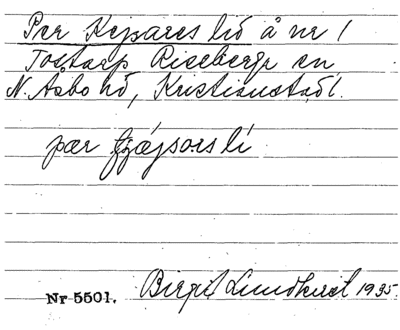 Per Kejsares lid å nr 1
Tostarp Riseberga sn
N. Åsbo hd, Kristianstad l.
pær
Nr 5501. Birgit Lundkvist 1935.